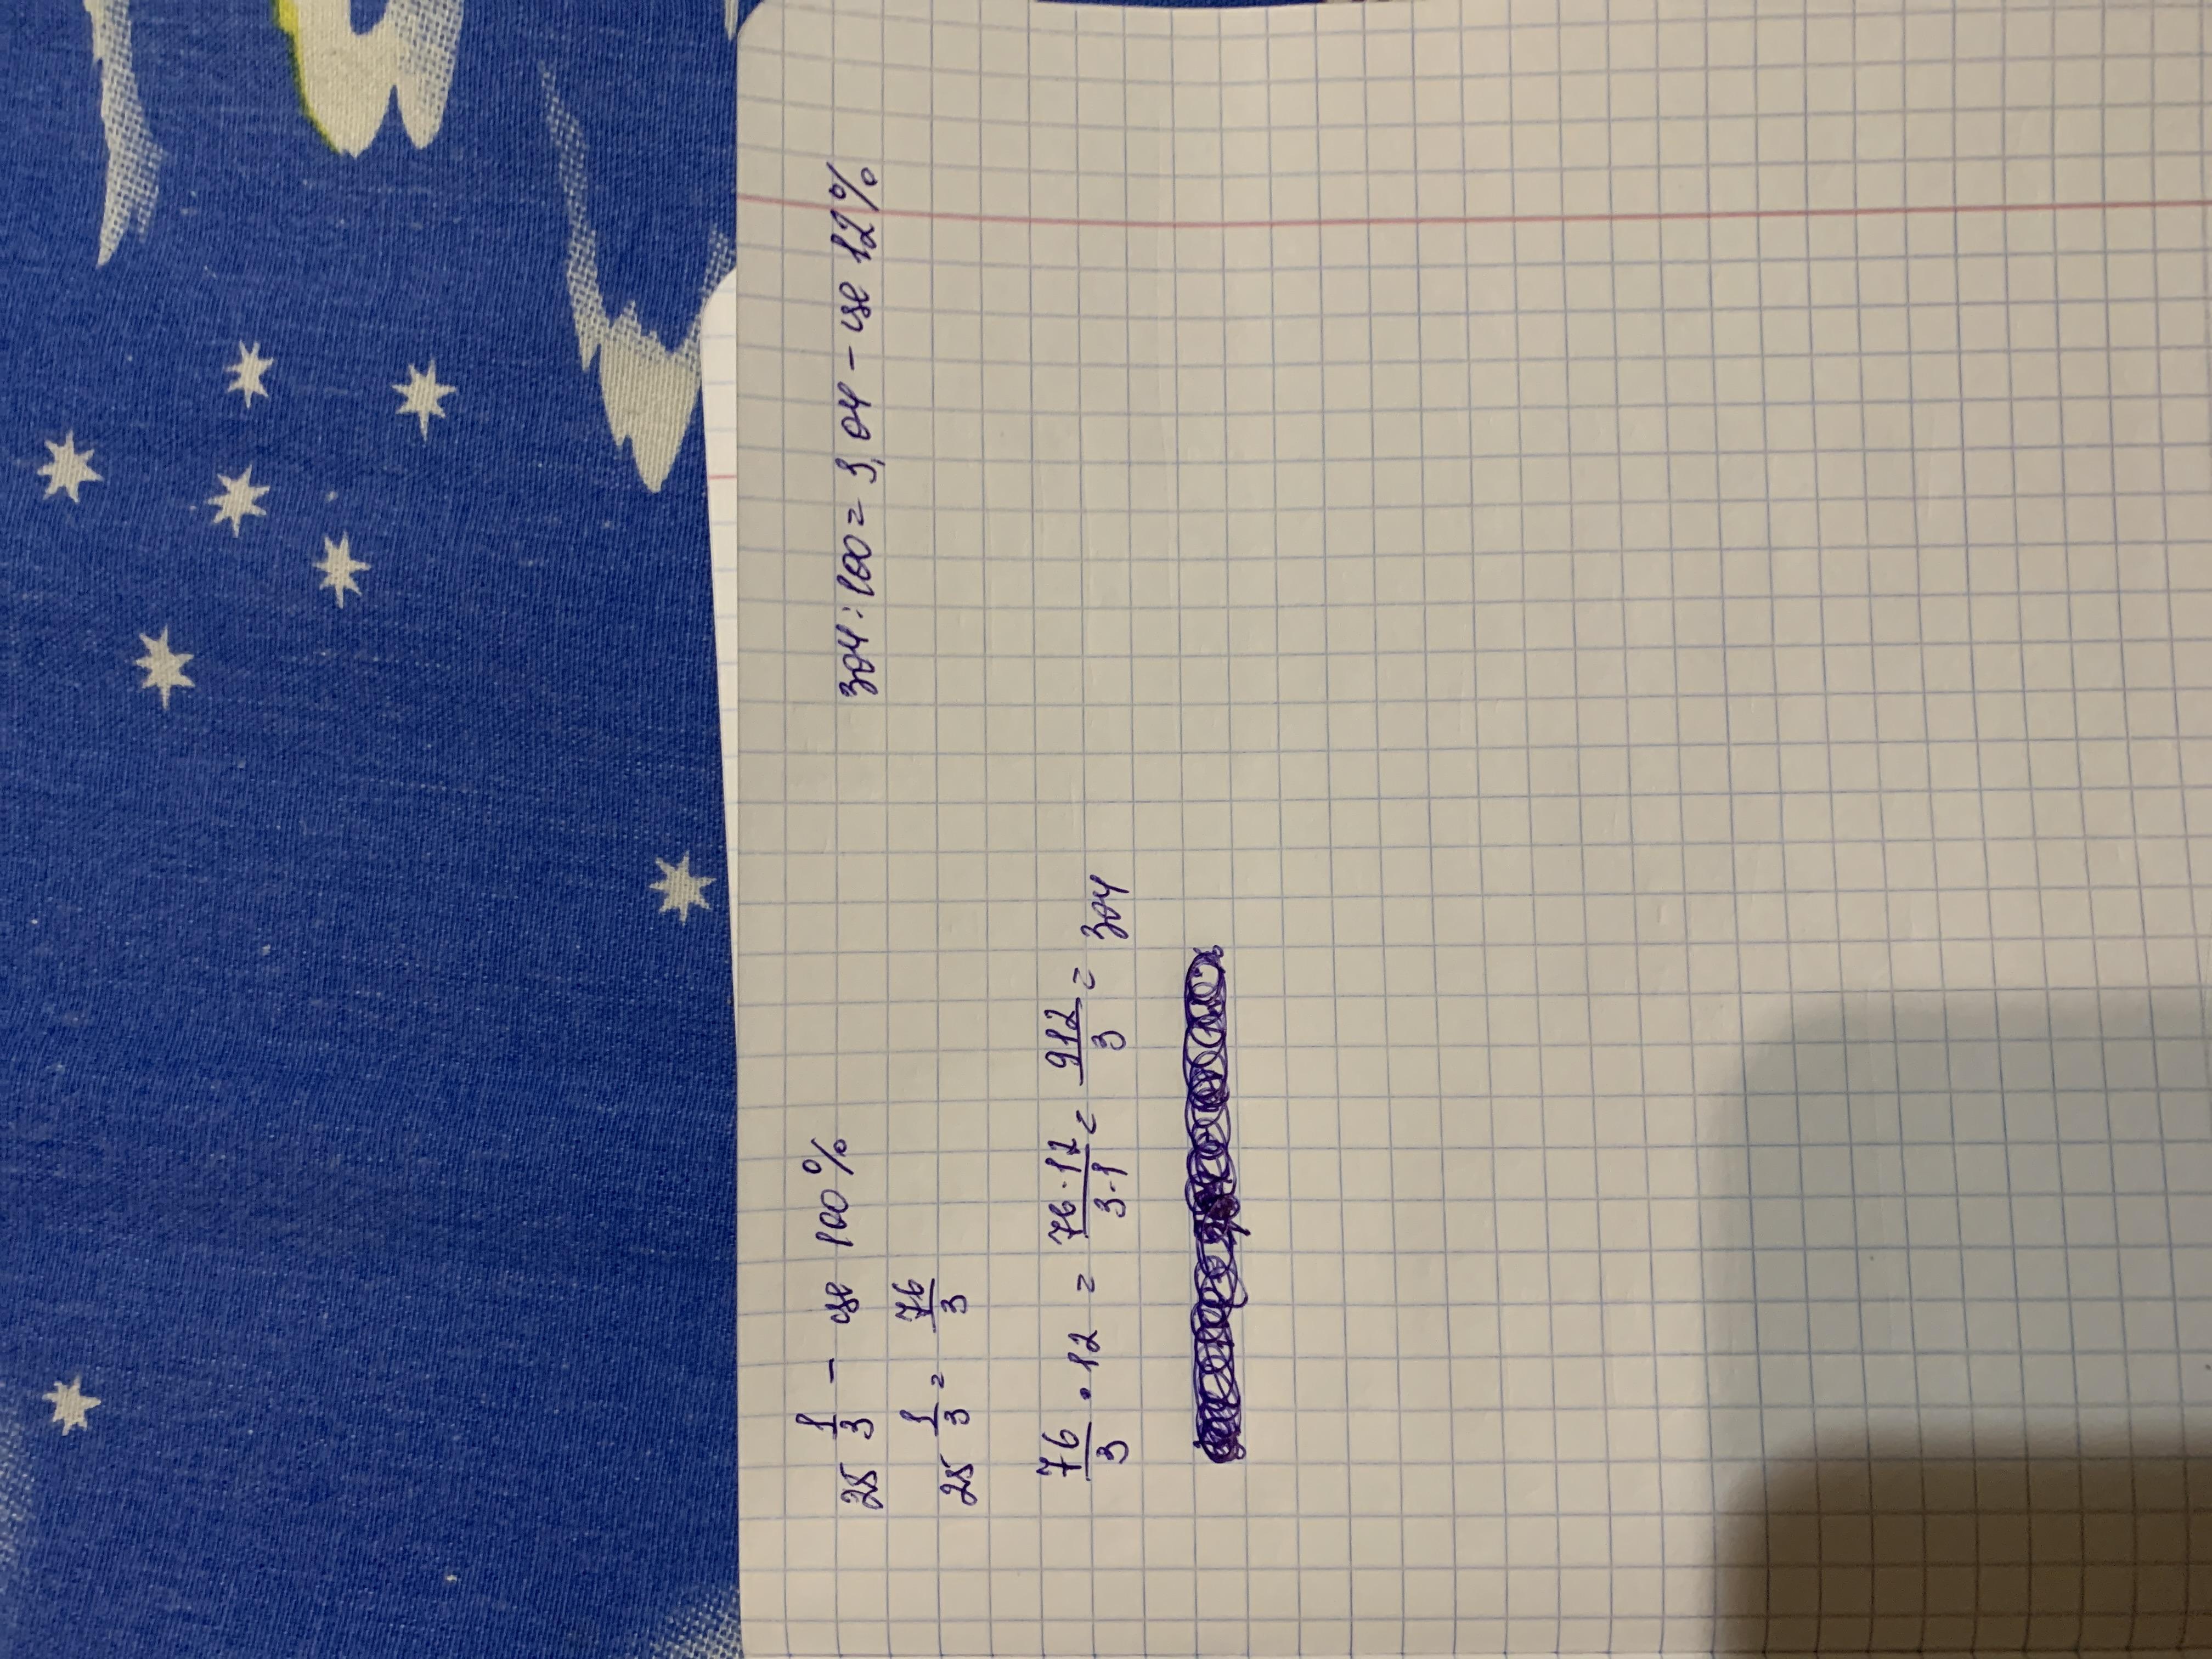 25 1/3 — це 100%
25 1/3 = 76/3
76/3 · 12 = 76·12/3·1 = 912/3 = 304
304:100 = 3,04 – це 12%